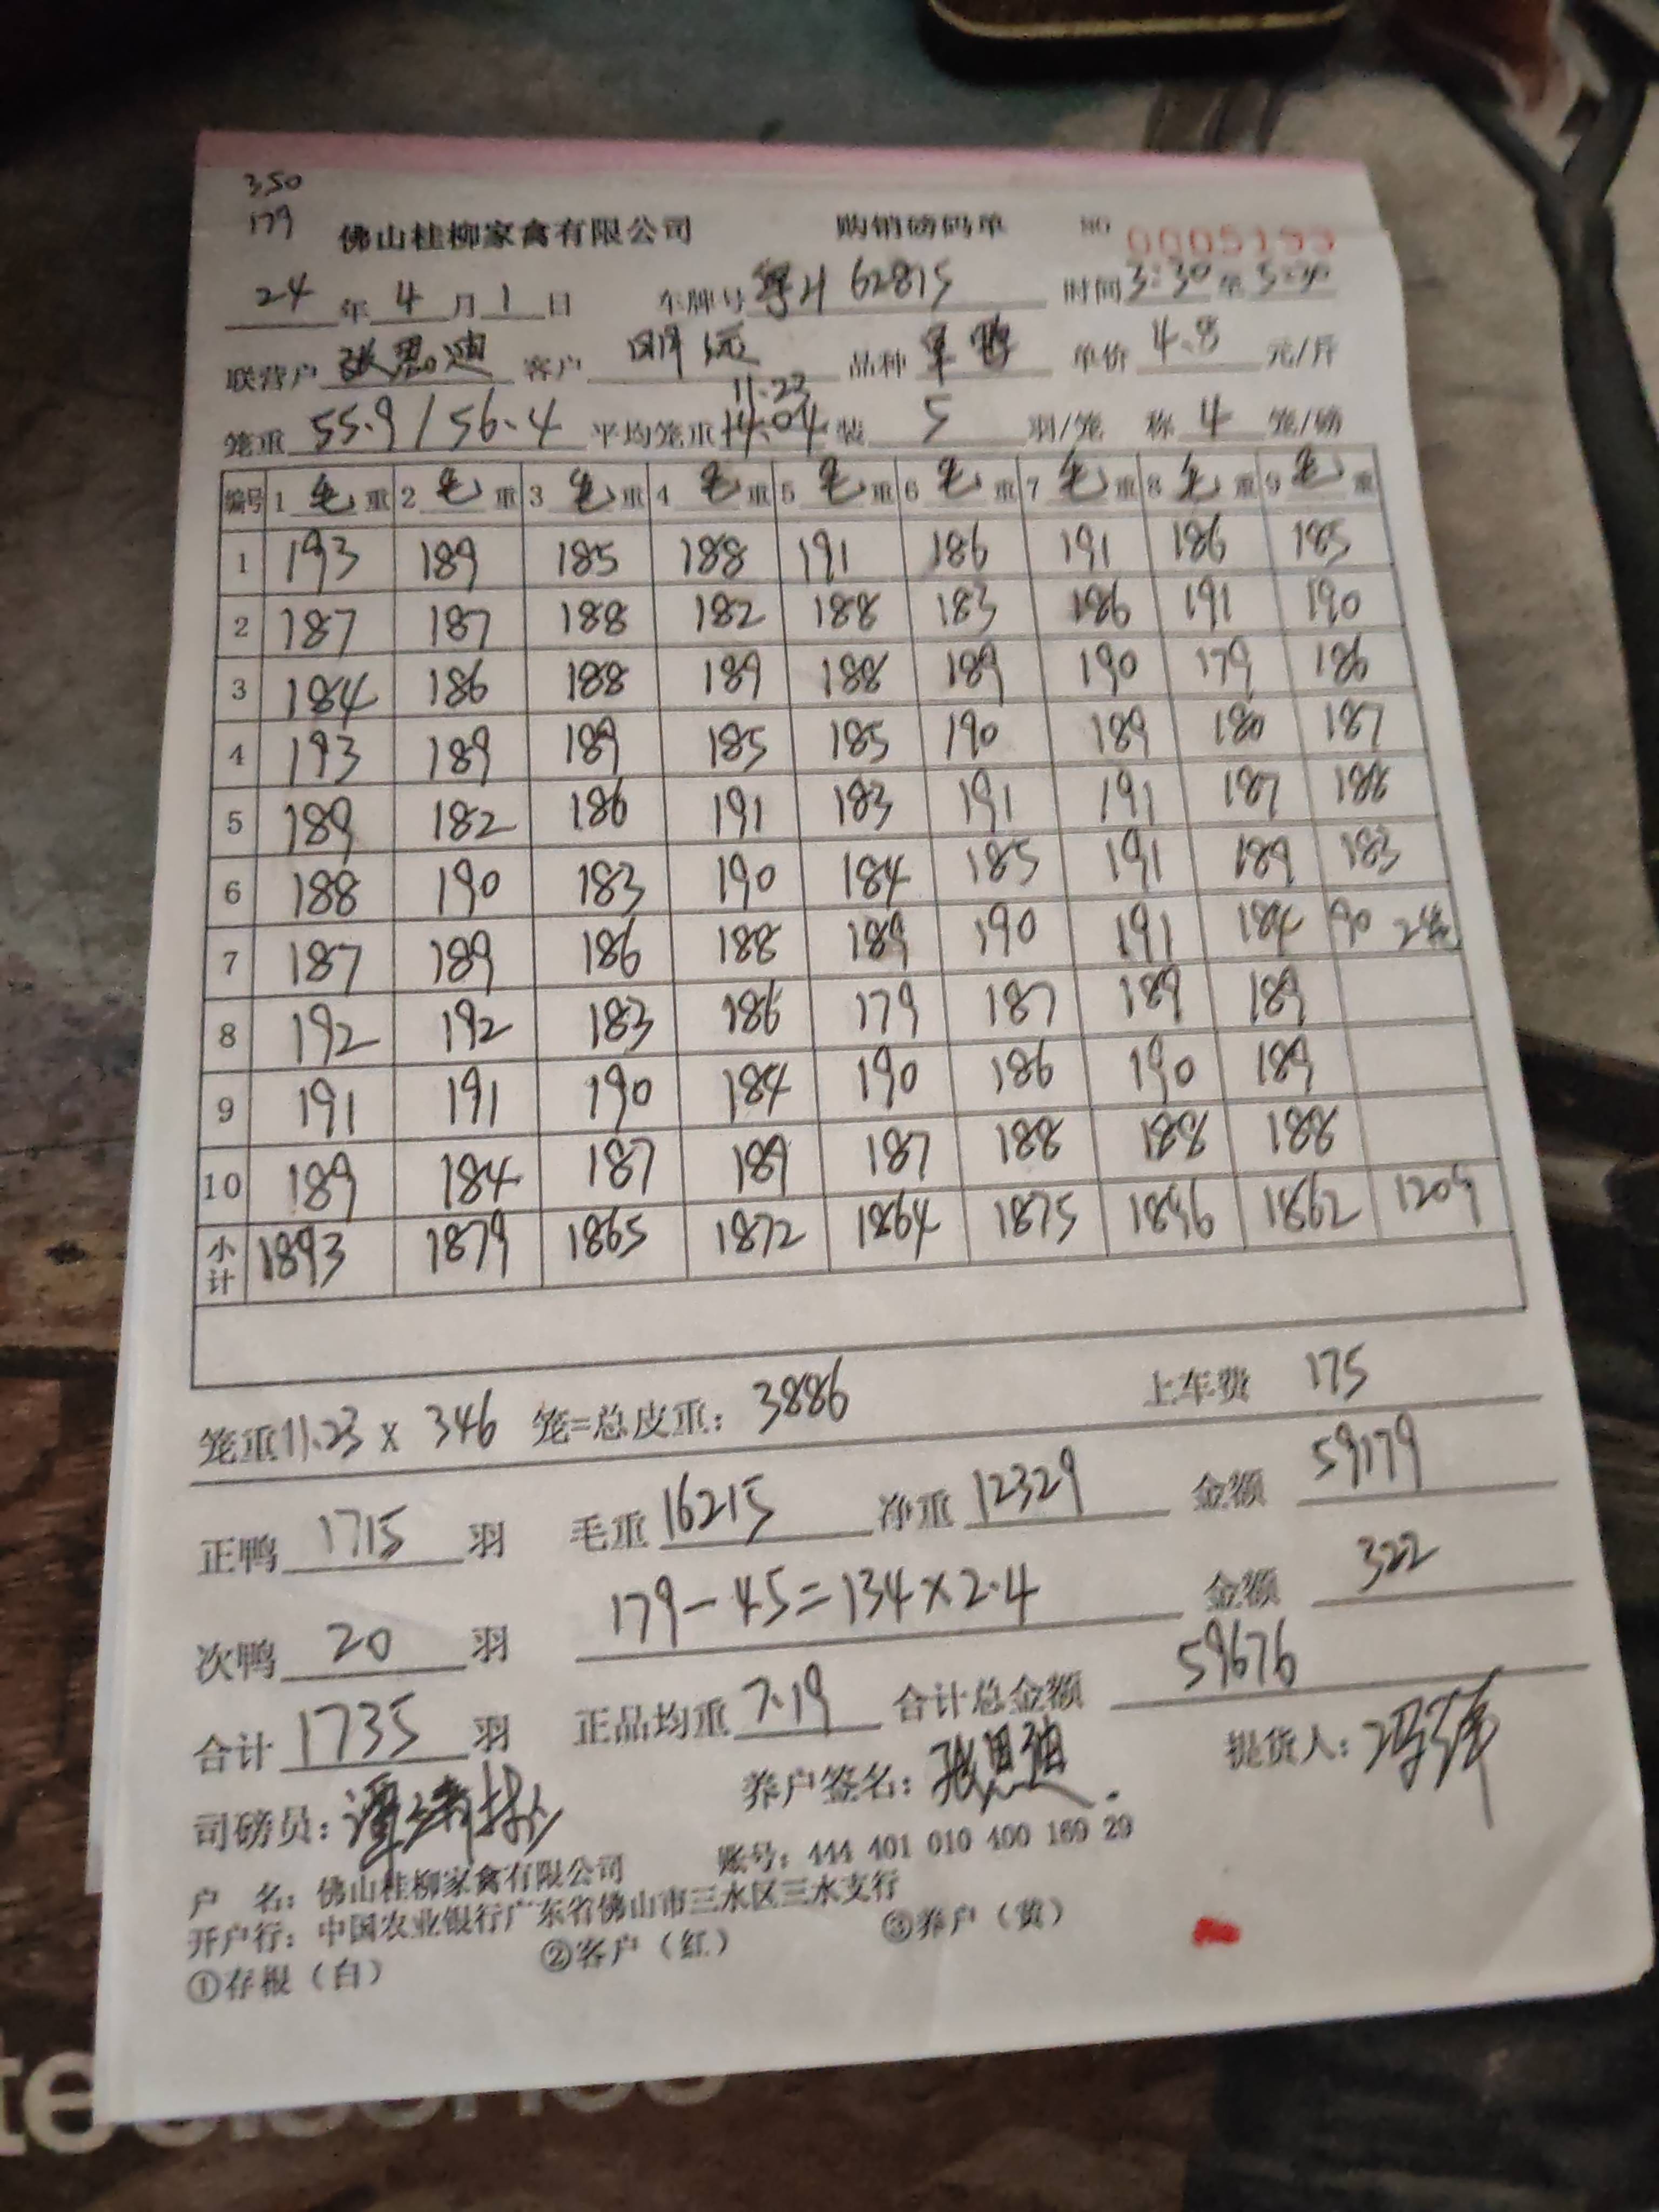 3.50
179
佛山桂柳家禽有限公司 购销磅码单 NO 0005199
24 年 4 月 1 日 车牌号 粤H 62815 时间 3:30 至 5:30
联营户 张思迪 客户 明远 品种 单价 4.8 元/斤
11.23
笼重 55.9 / 56.4 平均笼重 14.04 装 5 羽/笼 称 4 笼/磅
编号 1 毛 重 2 毛 重 3 毛 重 4 毛 重 5 毛 重 6 毛 重 7 毛 重 8 毛 重 9 毛 重
1 193 189 185 188 191 186 191 186 185
2 187 187 188 182 188 183 186 191 190
3 184 186 188 189 188 189 190 179 186
4 193 189 189 185 185 190 189 180 187
5 189 182 186 191 183 191 191 187 188
6 188 190 183 190 184 185 191 189 183
7 187 189 186 188 189 190 191 184 90 2笼
8 192 192 183 186 179 187 189 189
9 191 191 190 184 190 186 190 189
10 189 184 187 189 187 188 188 188
小计 1893 1879 1865 1872 1864 1875 1896 1862 1209
笼重 11.23 x 346 笼=总皮重: 3886 上车费 175
正鸭 1715 羽 毛重 16215 净重 12329 金额 59179
次鸭 20 羽 179-45=134×2.4 金额 322
合计 1735 羽 正品均重 7.19 合计总金额 59676
司磅员: 养户签名: 张思迪. 提货人:
户 名: 佛山桂柳家禽有限公司 账号: 444 401 010 400 169 29
开户行: 中国农业银行广东省佛山市三水区三水支行
①存根（白） ②客户（红） ③养户（黄）